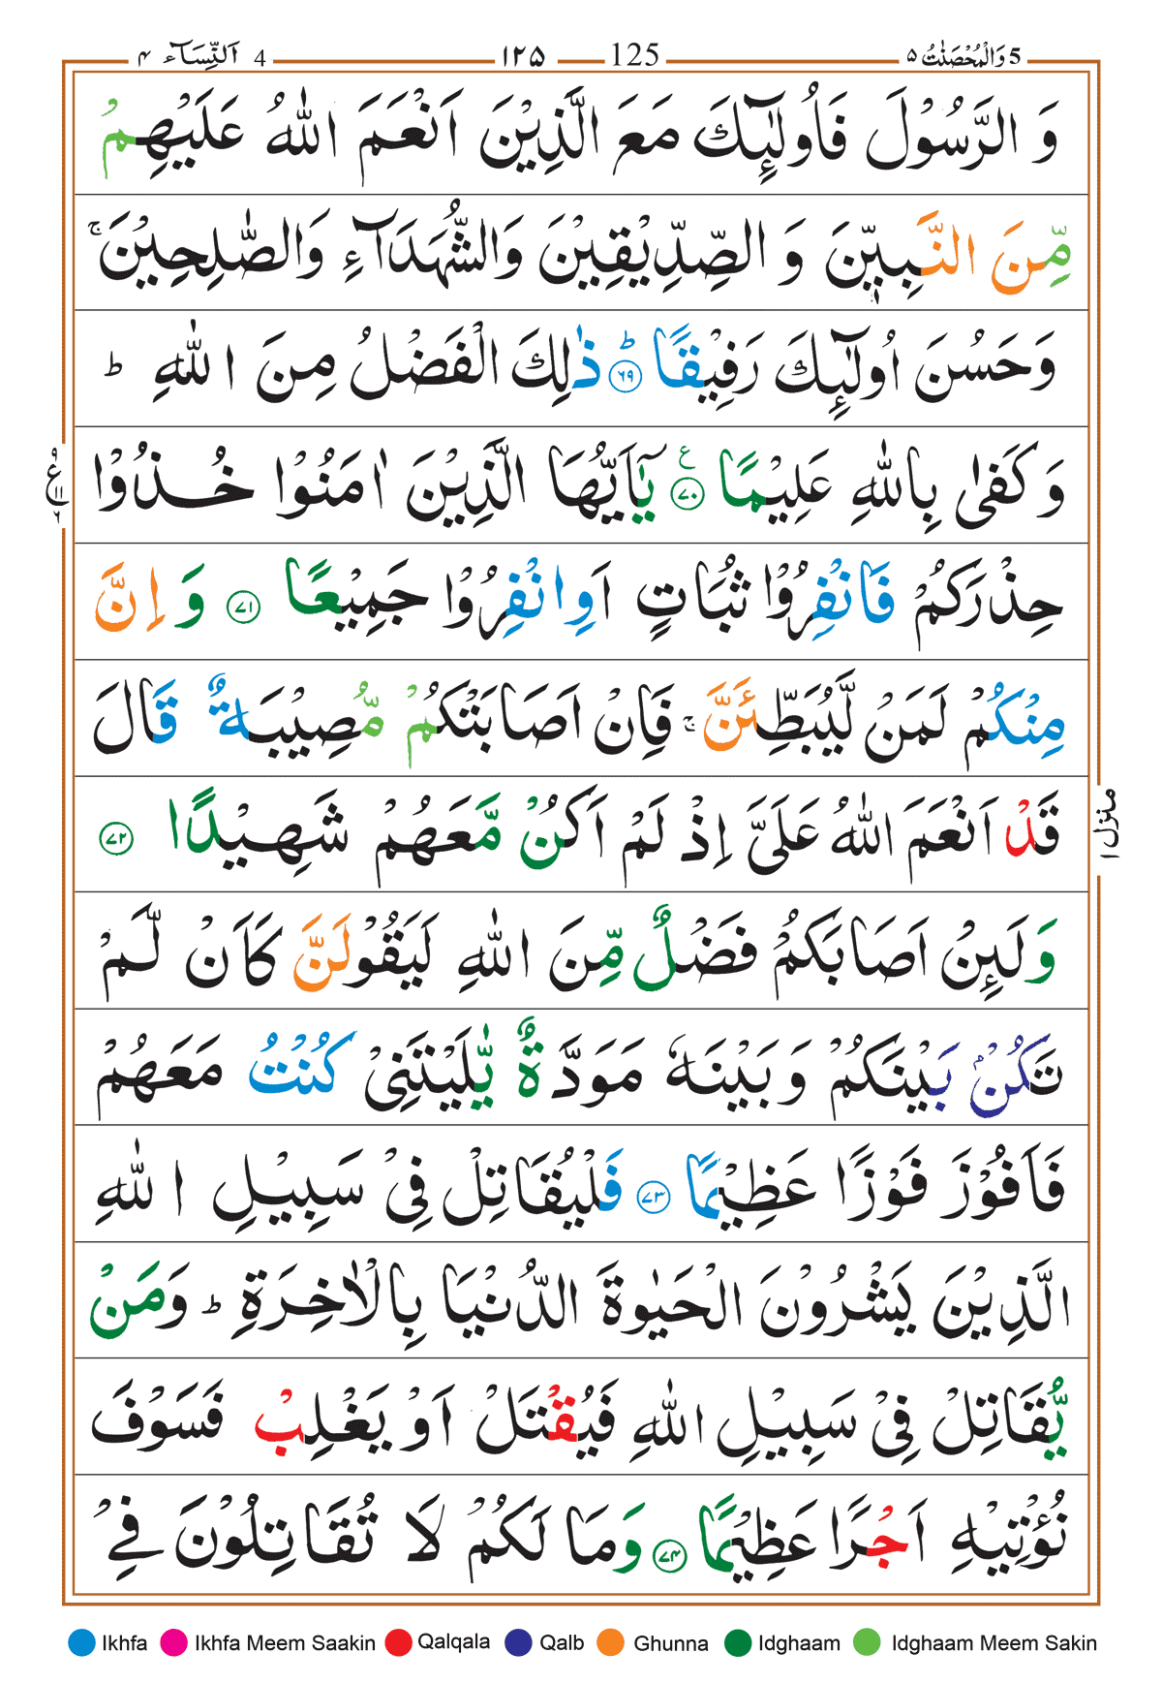 5 وَالْمُحْصَنٰتُ ۵ 125 ۱۲۵ 4 اَلنِّسَآء ۴
وَ الرَّسُوْلَ فَاُولٰٓئِكَ مَعَ الَّذِيْنَ اَنْعَمَ اللّٰهُ عَلَيْهِمْ
مِّنَ النَّبِيّٖنَ وَ الصِّدِّيْقِيْنَ وَالشُّهَدَآءِ وَالصّٰلِحِيْنَ ۚ
وَحَسُنَ اُولٰٓئِكَ رَفِيْقًا ؕ ﴿۶۹﴾ ذٰلِكَ الْفَضْلُ مِنَ اللّٰهِ ؕ
وَكَفٰى بِاللّٰهِ عَلِيْمًا ﴿۷۰﴾ ع يٰٓاَيُّهَا الَّذِيْنَ اٰمَنُوْا خُذُوْا
حِذْرَكُمْ فَانْفِرُوْا ثُبَاتٍ اَوِ انْفِرُوْا جَمِيْعًا ﴿۷۱﴾ وَ اِنَّ
مِنْكُمْ لَمَنْ لَّيُبَطِّئَنَّ ۚ فَاِنْ اَصَابَتْكُمْ مُّصِيْبَةٌ قَالَ
قَدْ اَنْعَمَ اللّٰهُ عَلَىَّ اِذْ لَمْ اَكُنْ مَّعَهُمْ شَهِيْدًا ﴿۷۲﴾
وَلَئِنْ اَصَابَكُمْ فَضْلٌ مِّنَ اللّٰهِ لَيَقُوْلَنَّ كَاَنْ لَّمْ
تَكُنْۢ بَيْنَكُمْ وَبَيْنَهٗ مَوَدَّةٌ يّٰلَيْتَنِىْ كُنْتُ مَعَهُمْ
فَاَفُوْزَ فَوْزًا عَظِيْمًا ﴿۷۳﴾ فَلْيُقَاتِلْ فِىْ سَبِيْلِ اللّٰهِ
الَّذِيْنَ يَشْرُوْنَ الْحَيٰوةَ الدُّنْيَا بِالْاٰخِرَةِ ؕ وَمَنْ
يُّقَاتِلْ فِىْ سَبِيْلِ اللّٰهِ فَيُقْتَلْ اَوْ يَغْلِبْ فَسَوْفَ
نُؤْتِيْهِ اَجْرًا عَظِيْمًا ﴿۷۴﴾ وَمَا لَكُمْ لَا تُقَاتِلُوْنَ فِىْ
ع ۱۱ ۶
منزل ۱
Ikhfa Ikhfa Meem Saakin Qalqala Qalb Ghunna Idghaam Idghaam Meem Sakin